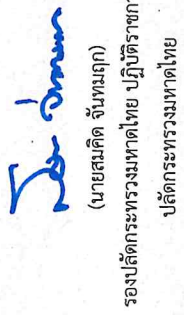 (นายสมคิด จันทมฤก)
รองปลัดกระทรวงมหาดไทย ปฏิบัติราชกา
ปลัดกระทรวงมหาดไทย